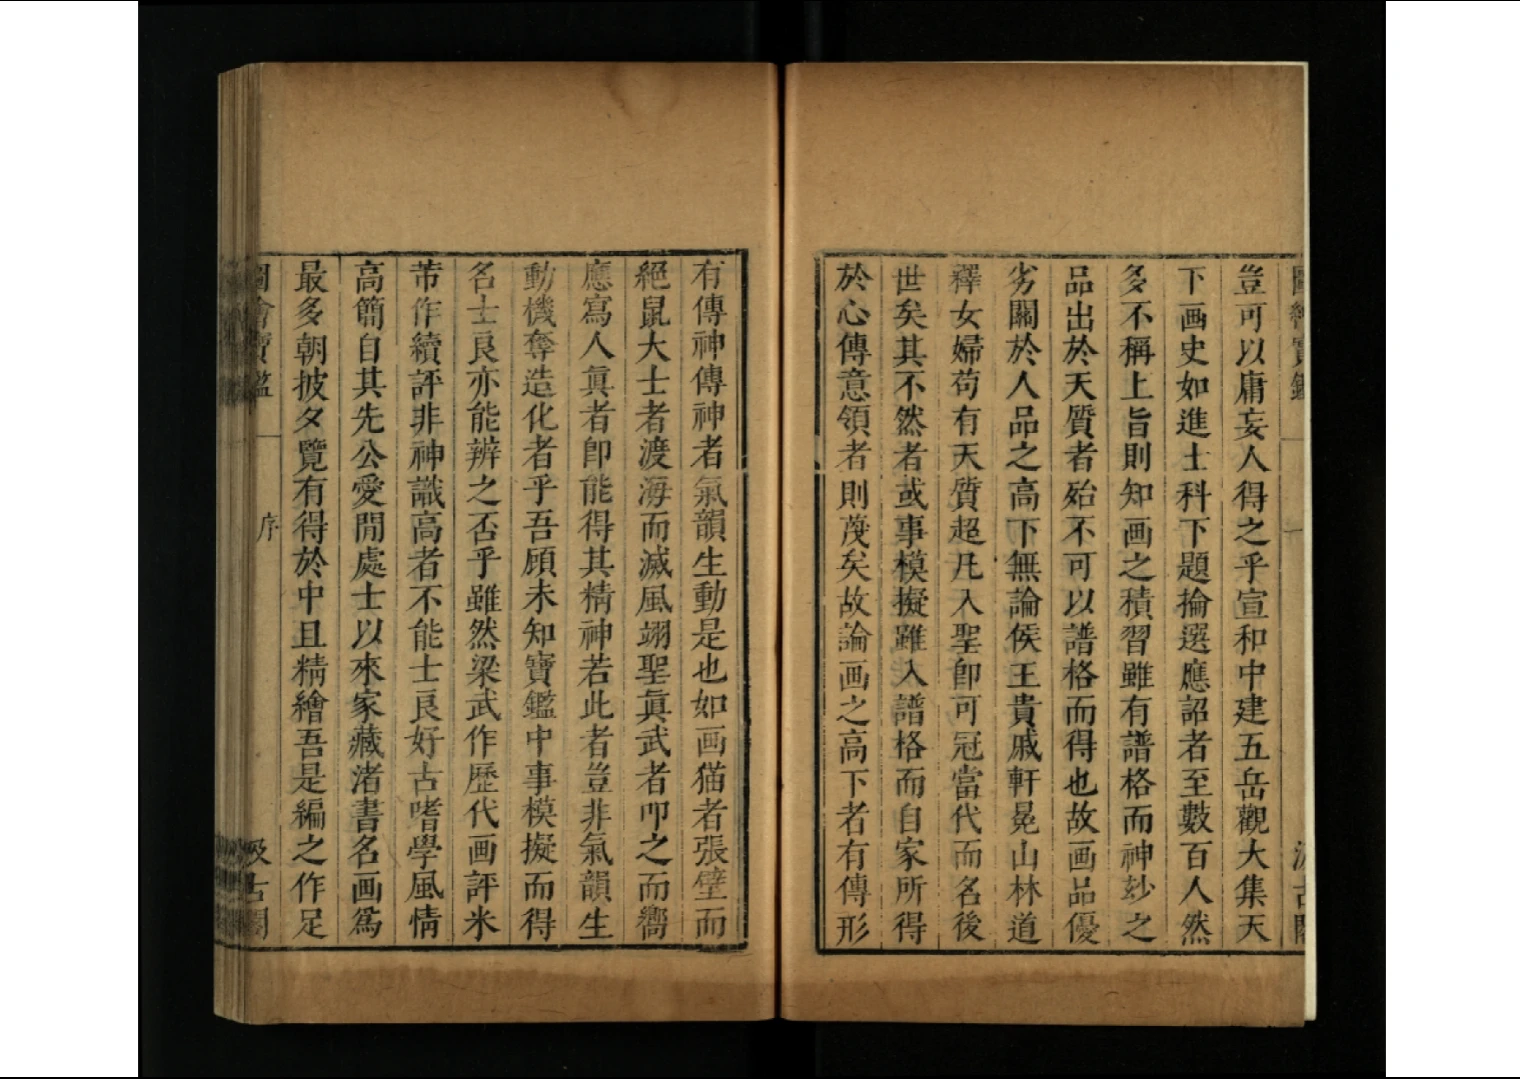 圖繪寶鑑
一
汲古閣
豈可以庸妄人得之乎宣和中建五岳觀大集天
下画史如進士科下題掄選應詔者至數百人然
多不稱上旨則知画之積習雖有譜格而神玅之
品出於天質者殆不可以譜格而得也故画品優
劣關於人品之高下無論侯王貴戚軒冕山林道
釋女婦苟有天質超凡入聖卽可冠當代而名後
世矣其不然者或事模擬雖入譜格而自家所得
於心傳意領者則蔑矣故論画之高下者有傳形
有傳神傳神者氣韻生動是也如画猫者張壁而
絕鼠大士者渡海而滅風翊聖眞武者叩之而嚮
應寫人眞者卽能得其精神若此者豈非氣韻生
動機奪造化者乎吾顧未知寶鑑中事模擬而得
名士良亦能辨之否乎雖然梁武作歷代画評米
芾作續評非神識高者不能士良好古嗜學風情
高簡自其先公愛閒處士以來家藏渚書名画爲
最多朝披夕覽有得於中且精繪吾是編之作足
圖會寶鑑
序
汲古閣